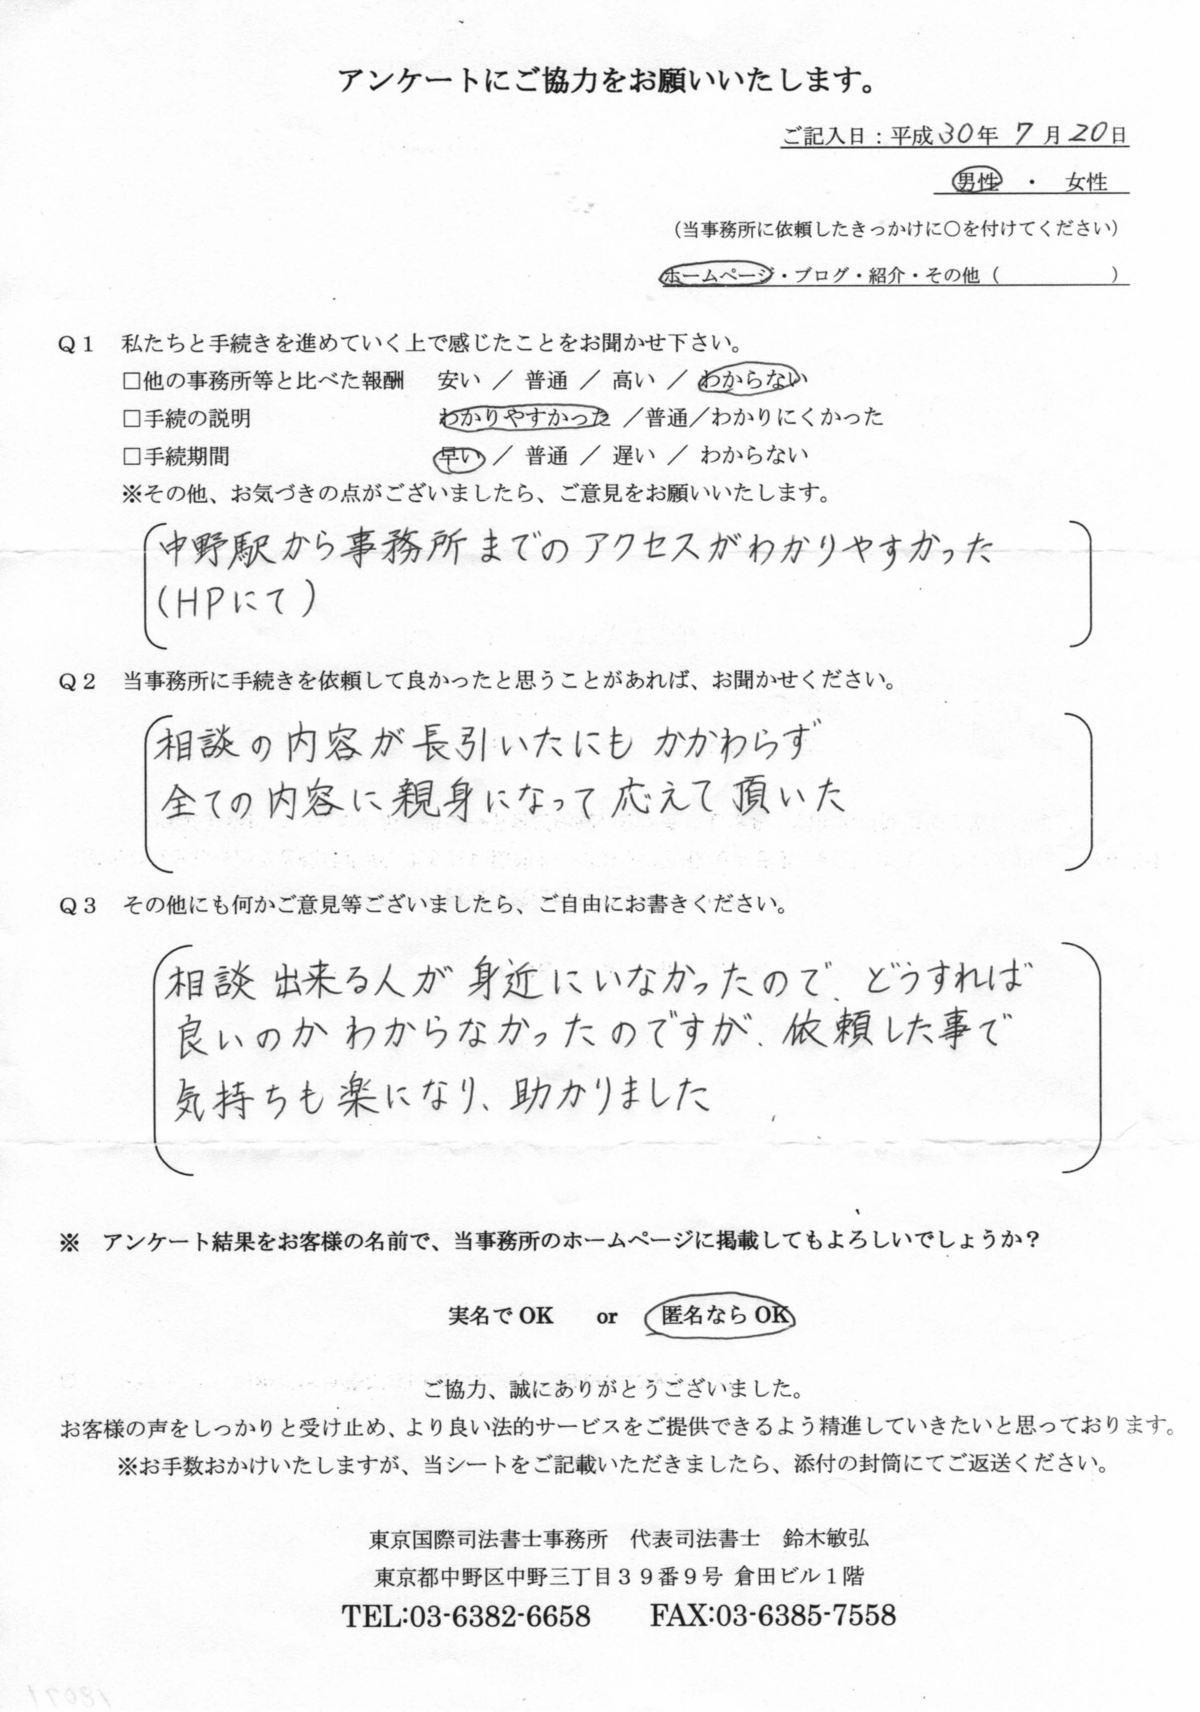 アンケートにご協力をお願いいたします。
ご記入日：平成30年 7月20日
男性 ・ 女性
（当事務所に依頼したきっかけに〇を付けてください）
ホームページ・ブログ・紹介・その他（ ）
Q1 私たちと手続きを進めていく上で感じたことをお聞かせ下さい。
□他の事務所等と比べた報酬 安い ／ 普通 ／ 高い ／ わからない
□手続の説明 わかりやすかった ／普通／わかりにくかった
□手続期間 早い ／ 普通 ／ 遅い ／ わからない
※その他、お気づきの点がございましたら、ご意見をお願いいたします。
中野駅から事務所までのアクセスがわかりやすかった
（HPにて）
Q2 当事務所に手続きを依頼して良かったと思うことがあれば、お聞かせください。
相談の内容が長引いたにもかかわらず
全ての内容に親身になって応えて頂いた
Q3 その他にも何かご意見等ございましたら、ご自由にお書きください。
相談出来る人が身近にいなかったので、どうすれば
良いのかわからなかったのですが、依頼した事で
気持ちも楽になり、助かりました
※ アンケート結果をお客様の名前で、当事務所のホームページに掲載してもよろしいでしょうか？
実名でOK or 匿名ならOK
ご協力、誠にありがとうございました。
お客様の声をしっかりと受け止め、より良い法的サービスをご提供できるよう精進していきたいと思っております。
※お手数おかけいたしますが、当シートをご記載いただきましたら、添付の封筒にてご返送ください。
東京国際司法書士事務所 代表司法書士 鈴木敏弘
東京都中野区中野三丁目３９番９号 倉田ビル１階
TEL:03-6382-6658 FAX:03-6385-7558